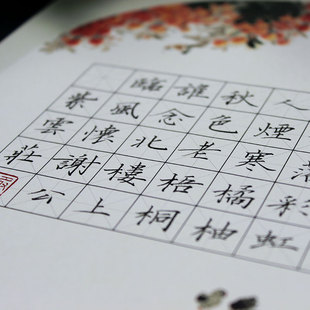 落彩虹
人煙寒橘柚
秋色老梧桐
誰念北樓上
臨風懷謝公
紫雲莊